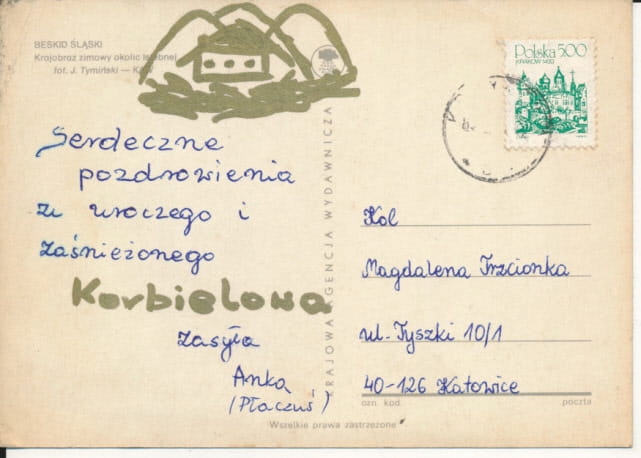 BESKID ŚLĄSKI
Krajobraz zimowy okolic Istebnej
fot. J. Tymiński — KAW
Polska 5.00
KRAKÓW 1493
Serdeczne
pozdrowienia
z uroczego i
zaśnieżonego
Korbielowa
zasyła
Anka
(Płaczuś)
KRAJOWA AGENCJA WYDAWNICZA
Kol
Magdalena Trzcionka
ul. Tyszki 10/1
40-126 Katowice
ozn. kod. poczta
Wszelkie prawa zastrzeżone